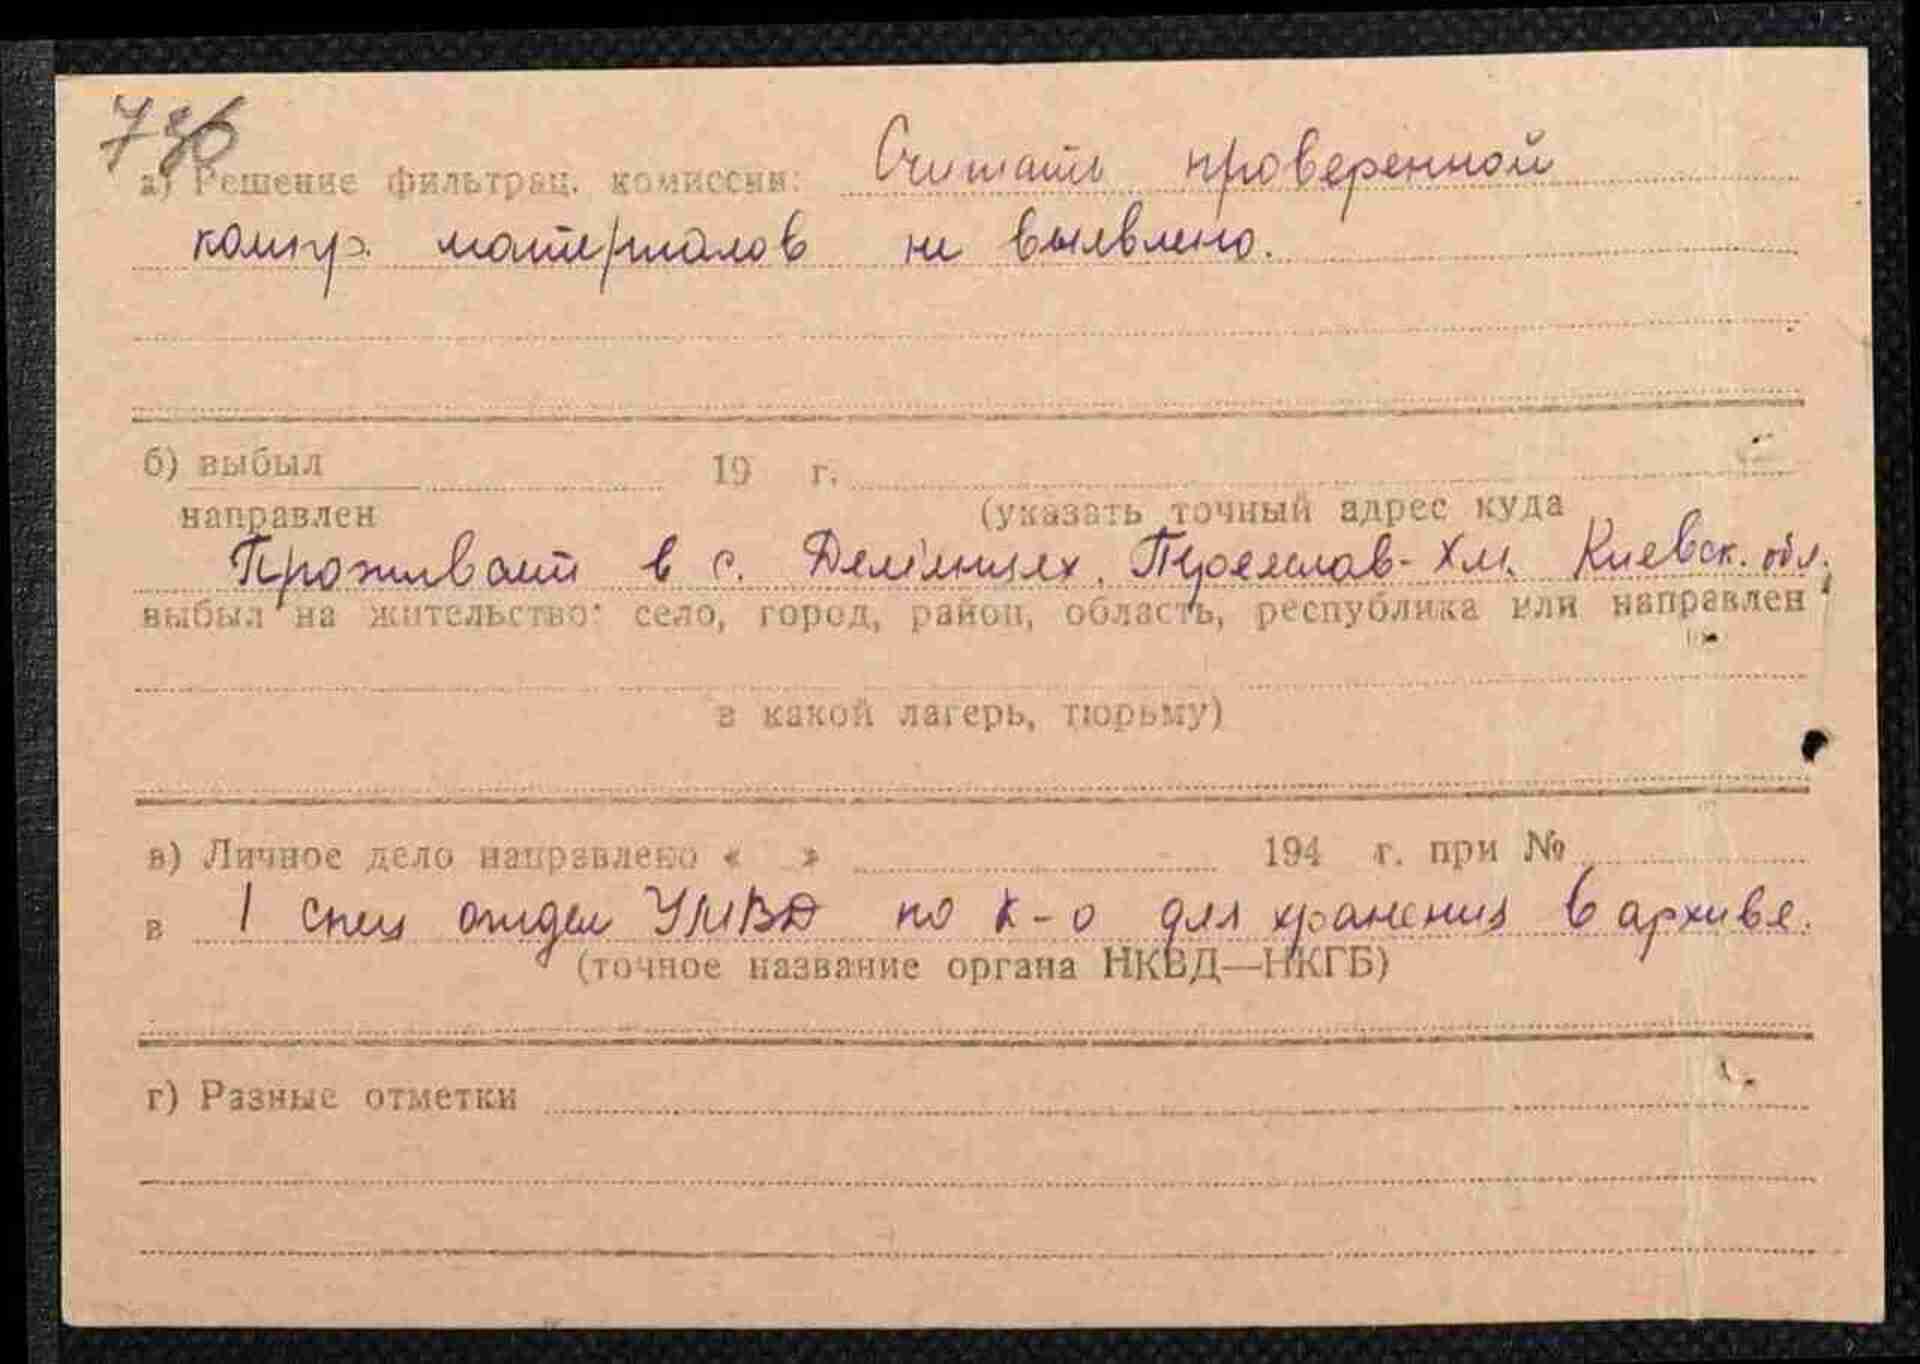 736
а) Решение фильтрац. комиссии: Считать проверенной
компр. материалов не выявлено.
б) выбыл 19 г.
направлен (указать точный адрес куда
Проживает в с. Дем'янцях, Переяслав-Хм. Киевск. обл.
выбыл на жительство: село, город, район, область, республика или направлен
в какой лагерь, тюрьму)
в) Личное дело направлено « » 194 г. при №
в 1 спец отдел УМВД по К-о для хранения в архиве.
(точное название органа НКВД—НКГБ)
г) Разные отметки